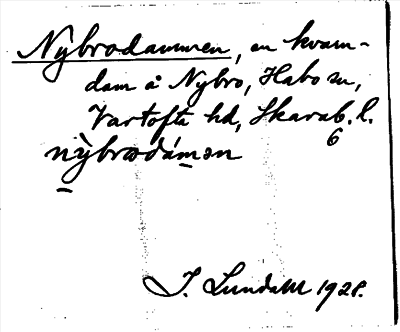 Nybrodammen, en kvarn-
dam å Nybro, Habo sn,
Vartofta hd, Skarab. l.
6
nỳbrodámən
J. Lundahl 1928.